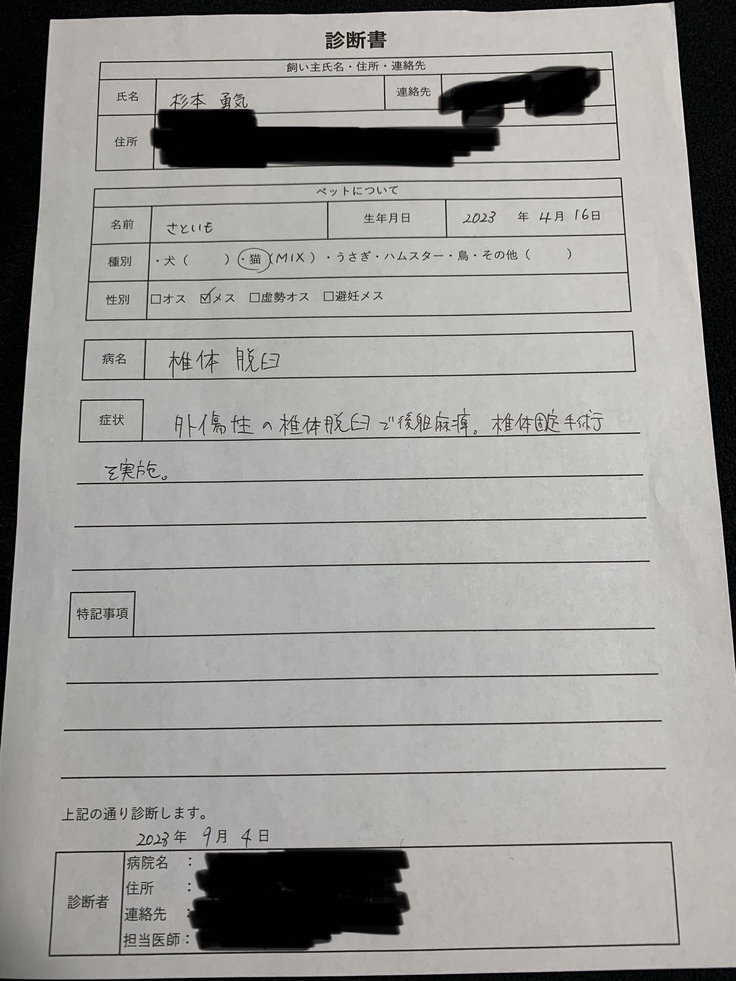 診断書
飼い主氏名・住所・連絡先
氏名 杉本 勇気 連絡先
住所
ペットについて
名前 さといも 生年月日 2023 年 4月 16日
種別 ・犬（ ）・猫（MIX）・うさぎ・ハムスター・鳥・その他（ ）
性別 □オス ☑メス □虚勢オス □避妊メス
病名 椎体 脱臼
症状 外傷性の椎体脱臼で後躯麻痺。椎体固定手術
を実施。
特記事項
上記の通り診断します。
2023年 9月 4日
診断者
病院名 ：
住所 ：
連絡先 ：
担当医師：